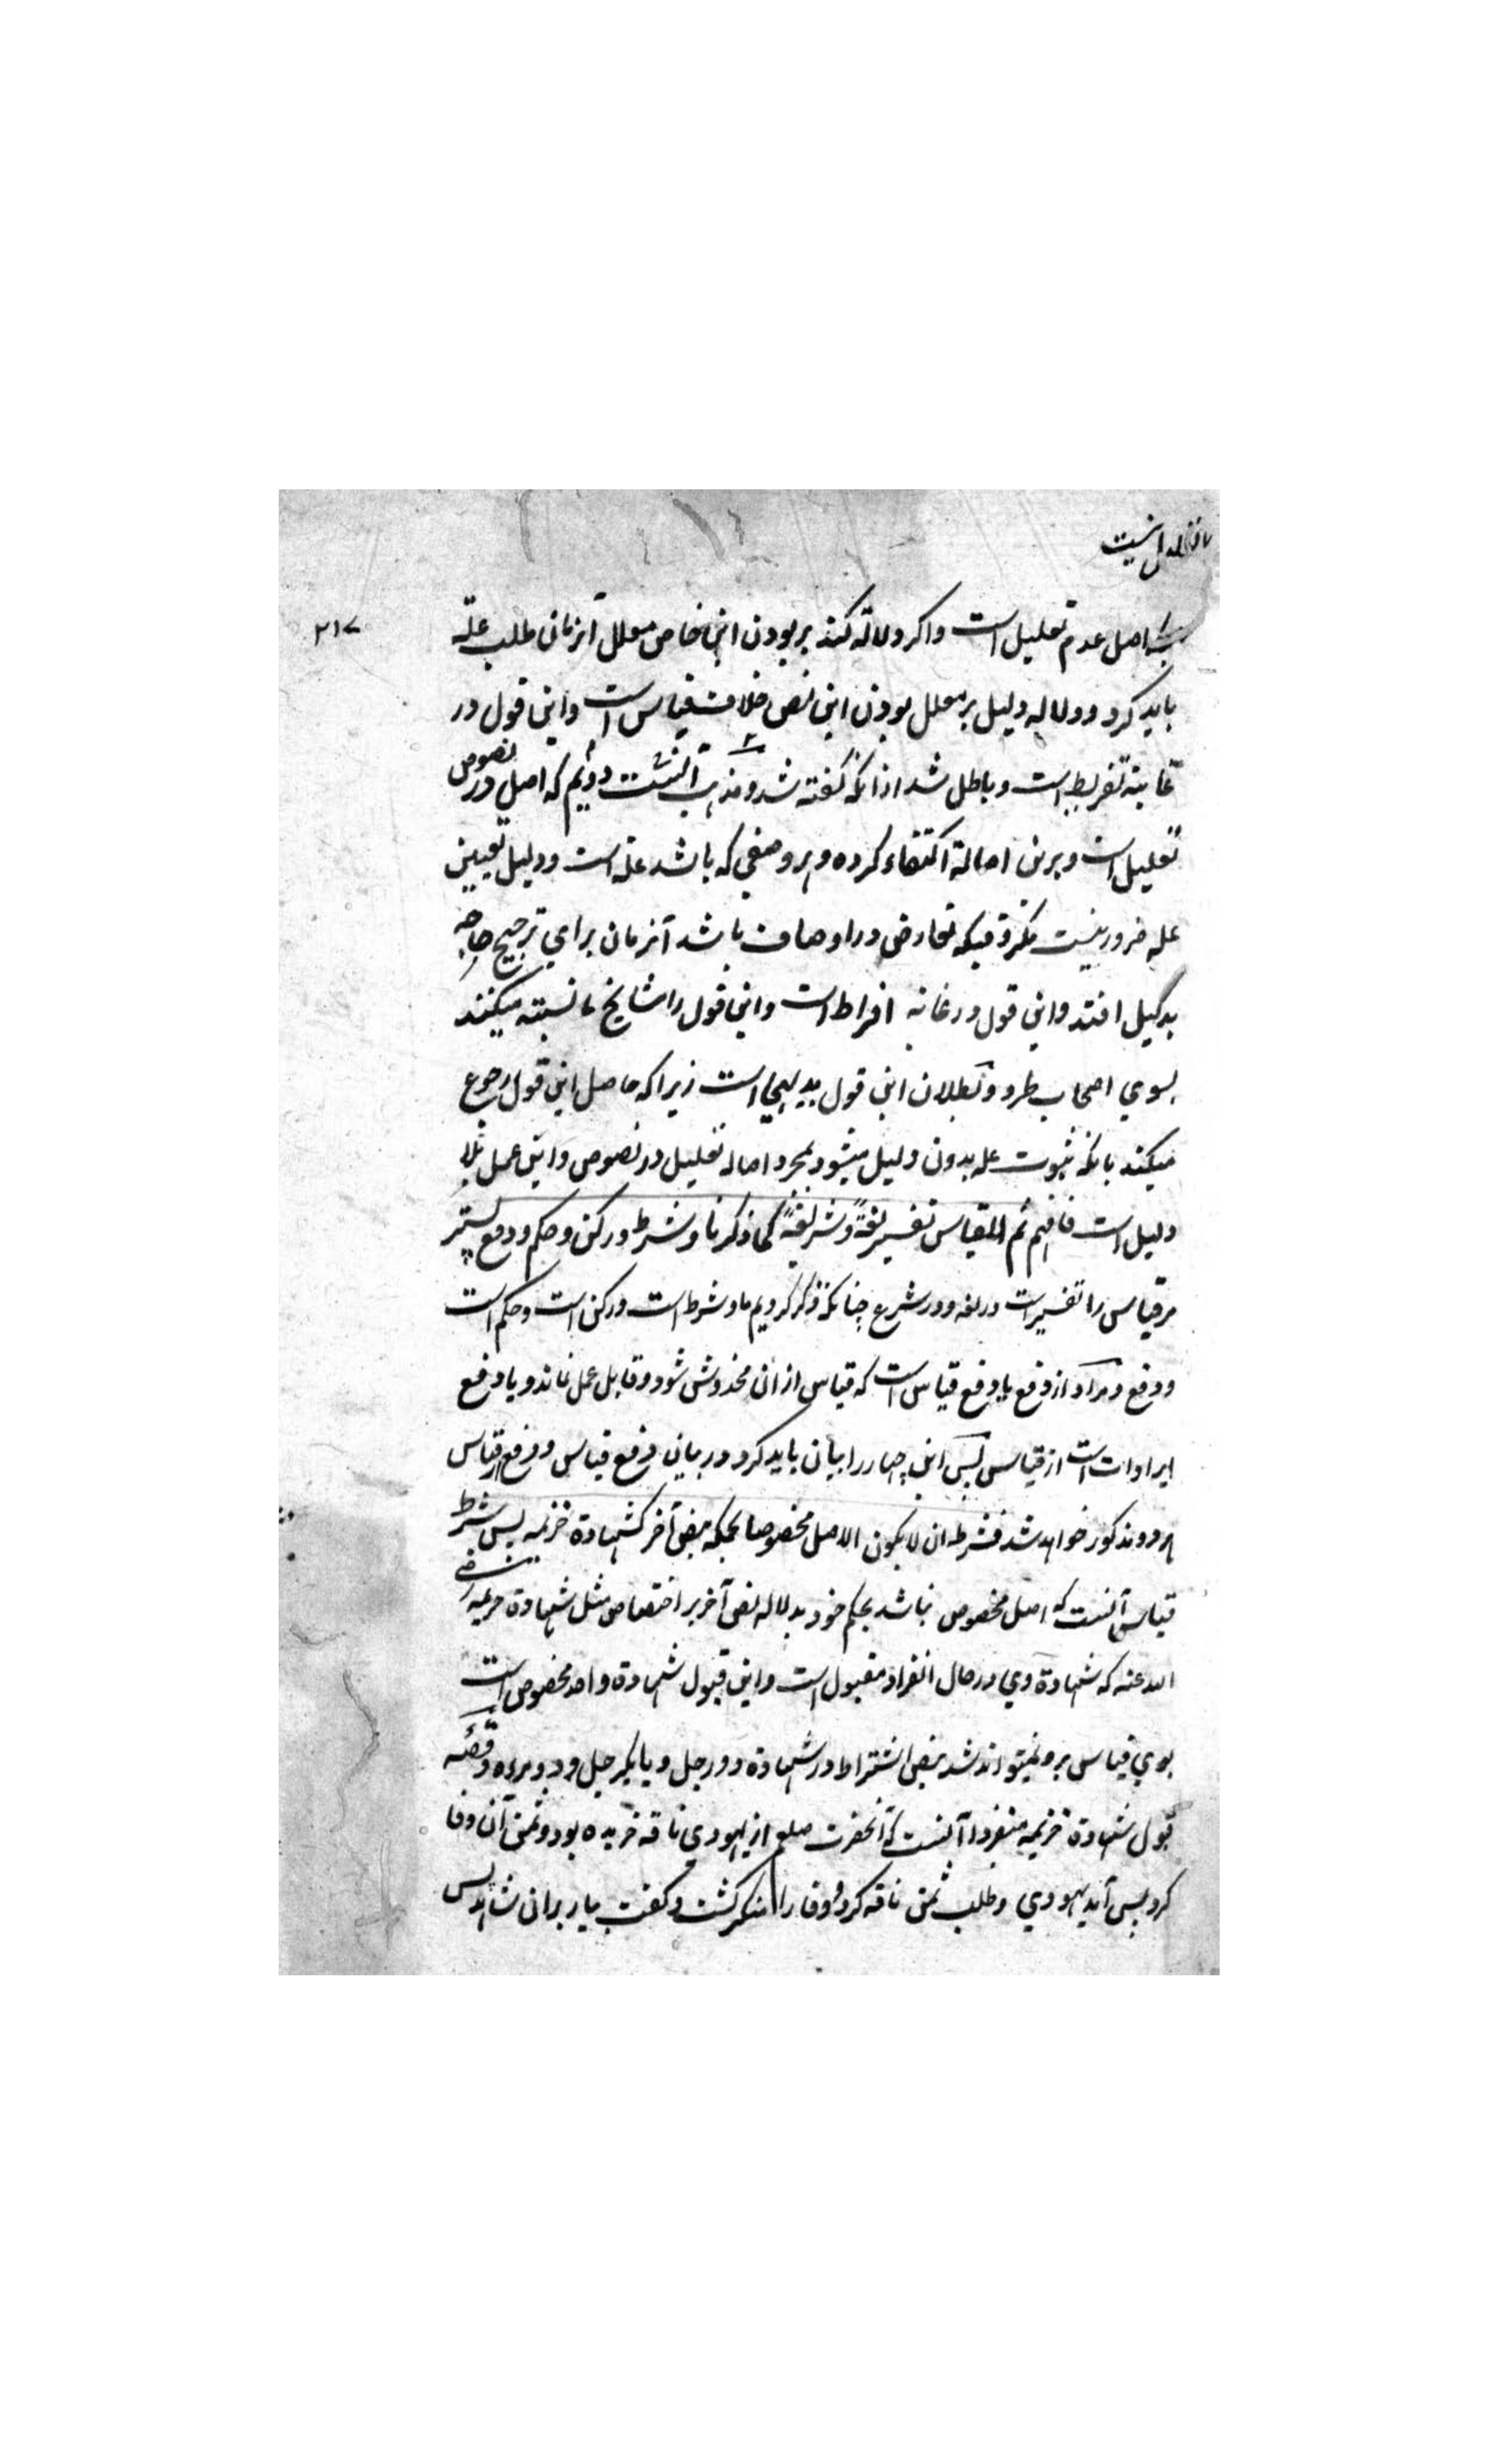 اصل عدم تعلیل است واکر دلالة کند بر بودن این خاص معلل آنزمان طلب علة
۲۱۷
باید کرد ودلاله دلیل بر معلل بودن این نص خلاف قیاس است واین قول در
غایته تفریط است وباطل شد ازانکه کفته شد ومذهب آنست دوئم که اصل در نصوص
تعلیل است وبرین اصالة اکتفاء کرده وهر وصفی که باشد علة است ودلیل تعیین
عله ضرور نیست مکر وقتیکه تعارض در اوصاف باشد آنزمان برای ترجیح حاجه
بدلیل افتد واین قول در غایه افراط است واین قول را مشایخ ما نسبته میکنند
بسوی اصحاب طرد وبطلان این قول بدیهی است زیراکه حاصل این قول رجوع
میکند بانکه ثبوت عله بدون دلیل میشود بمجرد اصاله تعلیل در نصوص واین عمل بلا
دلیل است فافهم ثم للقیاس تفسیر لغةً وشریعةً کما ذکرنا وشرط ورکن وحکم ودفع پستر
مر قیاس را تفسیر است در لغه ودر شرع چنانکه ذکر کردیم ما وشرط است ورکن است وحکم است
ودفع ومراد از دفع یا دفع قیاس است که قیاس ازان مخدوش شود وقابل عمل نماند ویا دفع
ایرادات است از قیاس پس این چهار را بیان باید کرد ودر بیان دفع قیاس ودفع از قیاس
هر دو مذکور خواهد شد فشرطه ان لا یکون الاصل مخصوصا بحکمه بنص آخر کشهادة خزیمه پس شرط
قیاس آنست که اصل مخصوص نباشد بحکم خود بدلاله نص آخر بر اختصاص مثل شهادة خزیمه رضی
الله عنه که شهادة وی در حال انفراد مقبول است واین قبول شهادة واحد مخصوص است
بوی قیاس برو نمیتواند شد بنص اشتراط در شهادة دو رجل ویا یکرجل ودو مرءه وقصه
قبول شهادة خزیمه منفردا آنست که آنحضرت صلعم از یهودی ناقه خریده بود وثمن آن وفا
کرد پس آمد یهودی وطلب ثمن ناقه کرد ووفا را منکر کشت وکفت بیار بران شاهد پس